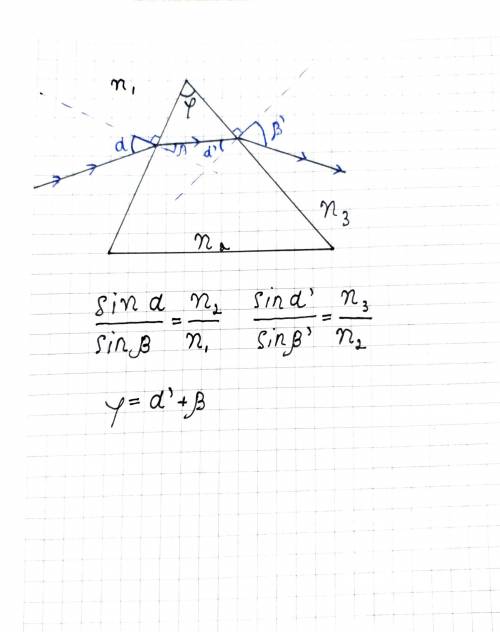 n₁
φ
α
β
α'
β'
n₃
n₂
sin α / sin β = n₂ / n₁    sin α' / sin β' = n₃ / n₂
φ = α' + β